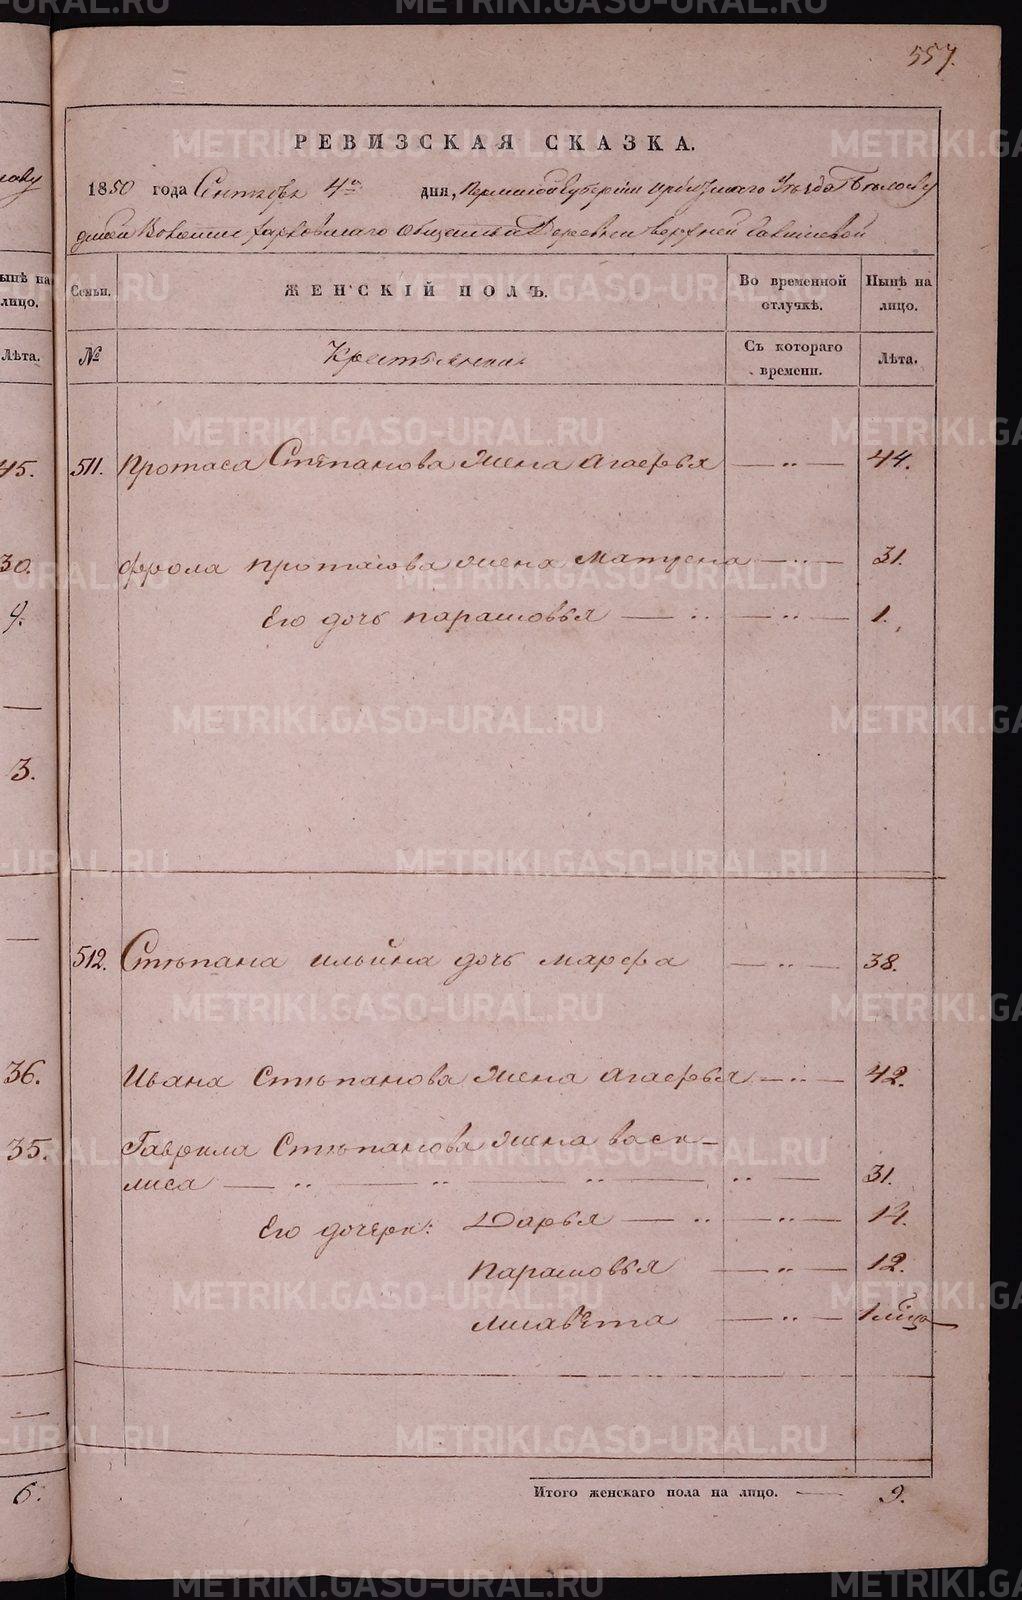 557.
РЕВИЗСКАЯ СКАЗКА.
1850 года Сентября 4го дня, Пермской Губернии Ирбитскаго Уѣзда Бѣлослу
дской Волости Харловскаго общества Деревни верхней
Семьи. ЖЕНСКІЙ ПОЛЪ. Во временной отлучкѣ. Нынѣ на лицо.
№ Крестьянки Съ котораго времени. Лѣта.
511. Протаса Степанова жена Агафья — „ — 44.
Фрола протасова жена Матрена — „ — 31.
Его дочь парасковья — „ — „ — 1.
512. Стѣпана ильина дочь марфа — „ — 38.
Ивана Стѣпанова жена Агафья — „ — 42.
Гаврила Стѣпанова жена васи–
лиса — „ — „ — „ — „ — 31.
Его дочери: Дарья — „ — „ — 14.
Парасковья — „ — 12.
Лисавѣта — „ —
Итого женскаго пола на лицо. — 9.
Нынѣ на лицо.
Лѣта.
45.
30.
9.
—
3.
—
36.
35.
—
6.
METRIKI.GASO-URAL.RU